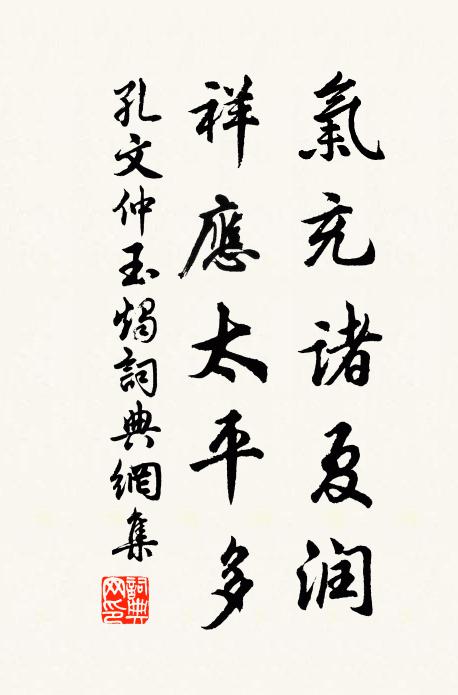 氣充諸夏润
祥應太平多
孔文仲玉燭詞典網集
詞典網印